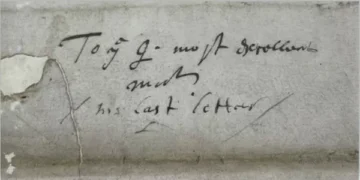 To yͤ Q. most Excellent
Matie
/ his last letter /